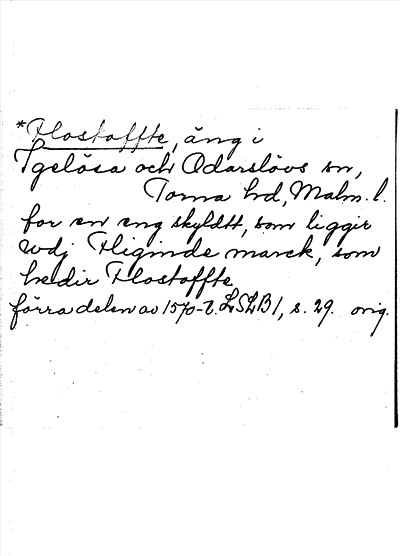 *Flostoffte, äng i
Igelösa och Odarslövs sn,
Torna hd, Malm. l.
for en eng skyldtt, som liggir
wdj Fliginde marck, som
hedir Flostoffte
förra delen av 1570-t. LSLB1, s. 29. orig.